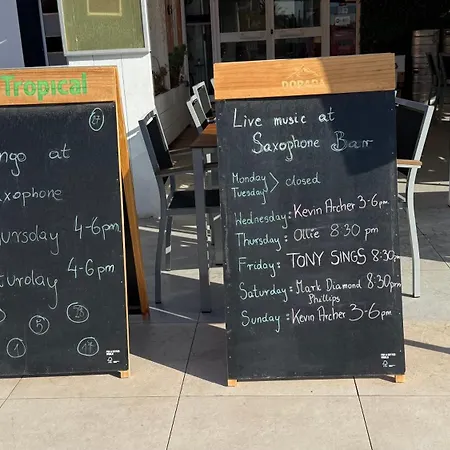 Tropical
27
ngo at
xophone
ursday 4-6pm
aturday 4-6pm
5
28
15
88
17
DORADA
Live music at
Saxophone Bar
Monday
Tuesday > closed
Wednesday: Kevin Archer 3-6pm
Thursday: Ollie 8:30 pm
Friday: TONY SINGS 8:30pm
Saturday: Mark Diamond 8:30pm
Phillips
Sunday: Kevin Archer 3-6pm